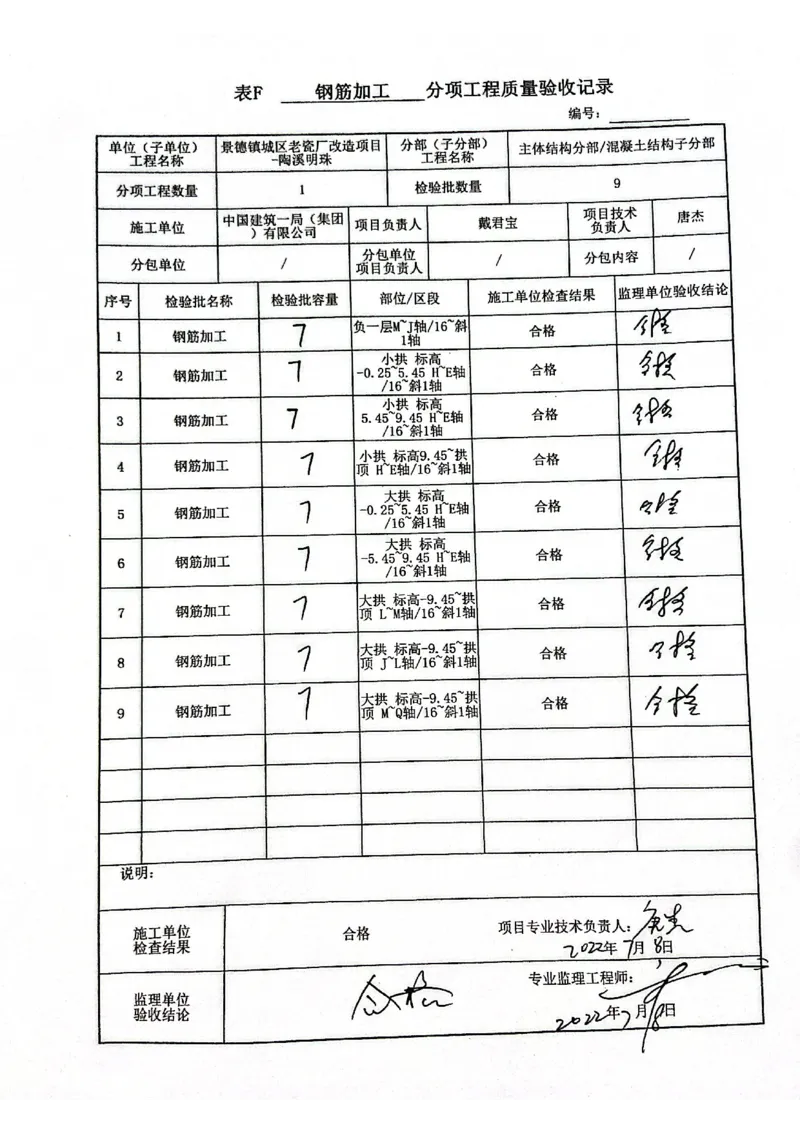 表F 钢筋加工 分项工程质量验收记录
编号：
单位（子单位）
工程名称
景德镇城区老瓷厂改造项目
-陶溪明珠
分部（子分部）
工程名称
主体结构分部/混凝土结构子分部
分项工程数量 1 检验批数量 9
施工单位
中国建筑一局（集团
）有限公司
项目负责人 戴君宝
项目技术
负责人
唐杰
分包单位 /
分包单位
项目负责人
/ 分包内容 /
序号 检验批名称 检验批容量 部位/区段 施工单位检查结果 监理单位验收结论
1 钢筋加工 7
负一层M~J轴/16~斜
1轴
合格 合格
2 钢筋加工 7
小拱 标高
-0.25~5.45 H~E轴
/16~斜1轴
合格 合格
3 钢筋加工 7
小拱 标高
5.45~9.45 H~E轴
/16~斜1轴
合格 合格
4 钢筋加工 7
小拱 标高9.45~拱
顶 H~E轴/16~斜1轴
合格 合格
5 钢筋加工 7
大拱 标高
-0.25~5.45 H~E轴
/16~斜1轴
合格 合格
6 钢筋加工 7
大拱 标高
-5.45~9.45 H~E轴
/16~斜1轴
合格 合格
7 钢筋加工 7
大拱 标高-9.45~拱
顶 L~M轴/16~斜1轴
合格 合格
8 钢筋加工 7
大拱 标高-9.45~拱
顶 J~L轴/16~斜1轴
合格 合格
9 钢筋加工 7
大拱 标高-9.45~拱
顶 M~Q轴/16~斜1轴
合格 合格
说明：
施工单位
检查结果
合格
项目专业技术负责人：唐杰
2022年7月8日
监理单位
验收结论
合格
专业监理工程师：
2022年7月8日